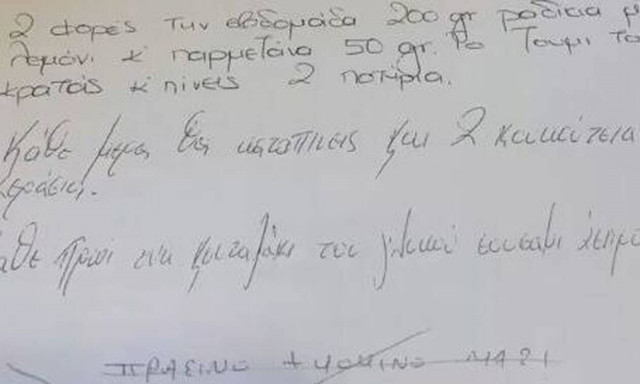 2 φορές την εβδομάδα 200 gr ραδίκια μ
λεμόνι κ παρμετάνα 50 gr. Το Τουμι το
κρατάς κ πίνεις 2 ποτήρια.
Κάθε μερα θα καταπινεις και 2 κουκούτσια
κεράσι.
άθε πρωι ενα κουταλάκι του γλυκού σουσαμι άσπρο
ΠΡΑΣΙΝΟ + ΚΟΚΙΝΟ ΜΑΖΙ